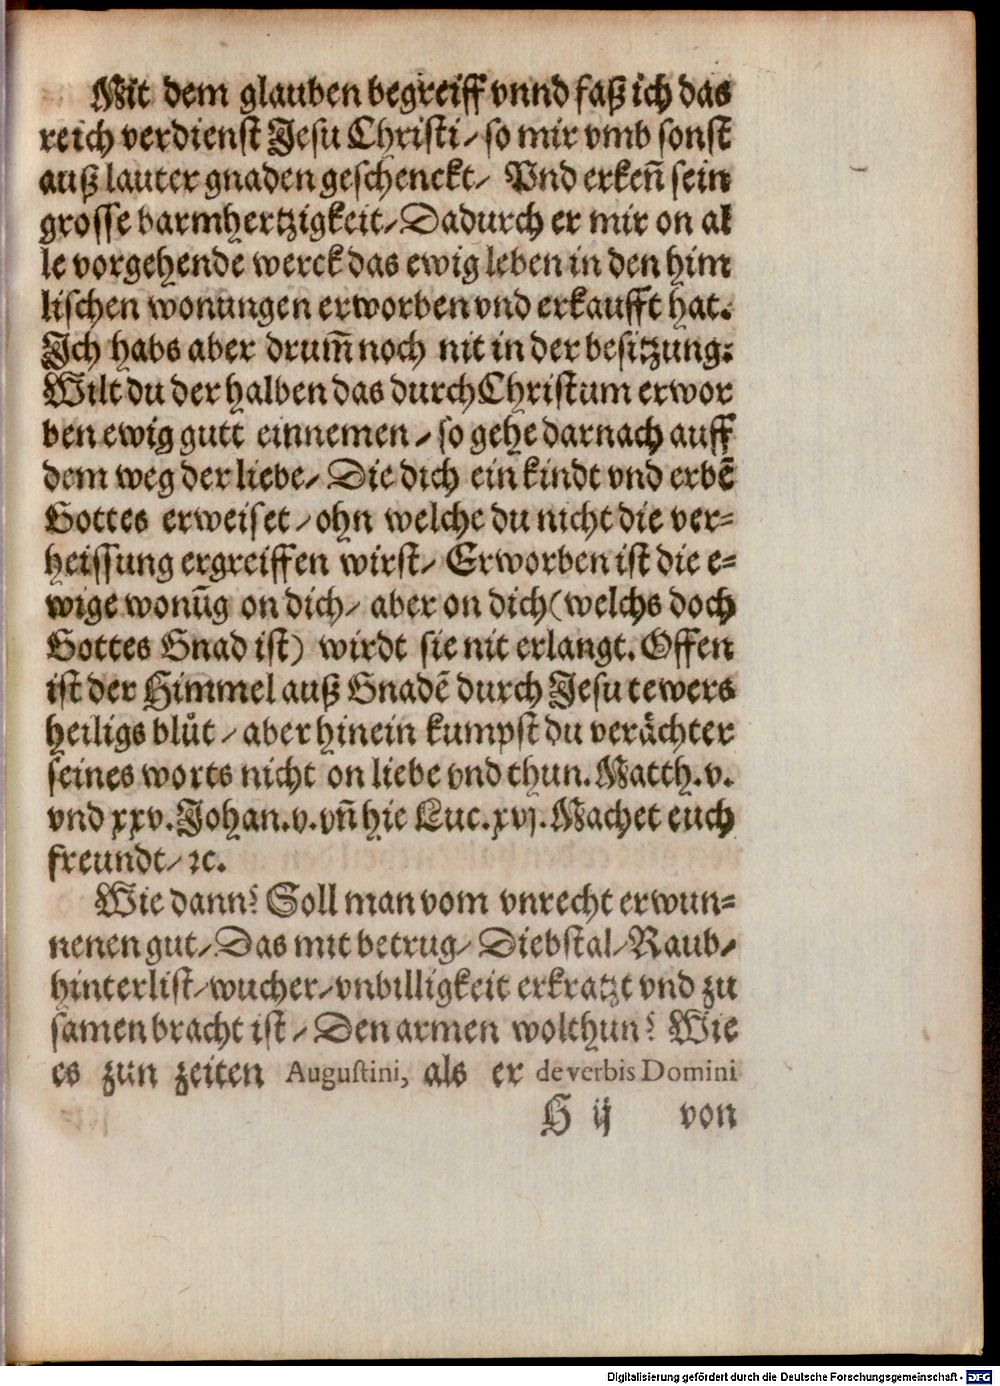 Mit dem glauben begreiff vnnd faß ich das
reich verdienst Jesu Christi/ so mir vmb sonst
auß lauter gnaden geschenckt/ Vnd erkeñ sein
grosse barmhertzigkeit/ Dadurch er mir on al
le vorgehende werck das ewig leben in den him
lischen wonungen erworben vnd erkaufft hat.
Ich habs aber drum̃ noch nit in der besitzung:
Wilt du der halben das durch Christum erwor
ben ewig gutt einnemen/ so gehe darnach auff
dem weg der liebe/ Die dich ein kindt vnd erbẽ
Gottes erweiset/ ohn welche du nicht die ver=
heissung ergreiffen wirst/ Erworben ist die e=
wige wonũg on dich/ aber on dich (welchs doch
Gottes Gnad ist) wirdt sie nit erlangt. Offen
ist der Himmel auß Gnadẽ durch Jesu tewers
heiligs blůt/ aber hinein kumpst du verächter
seines worts nicht on liebe vnd thun. Matth. v.
vnd xxv. Johan. v. vñ hie Luc. xvj. Machet euch
freundt/ ꝛc.
Wie dann? Soll man vom vnrecht erwun=
nenen gut/ Das mit betrug/ Diebstal/ Raub/
hinterlist/ wucher/ vnbilligkeit erkratzt vnd zu
samen bracht ist/ Den armen wolthun? Wie
es zun zeiten Augustini, als er de verbis Domini
H ij von
Digitalisierung gefördert durch die Deutsche Forschungsgemeinschaft - DFG